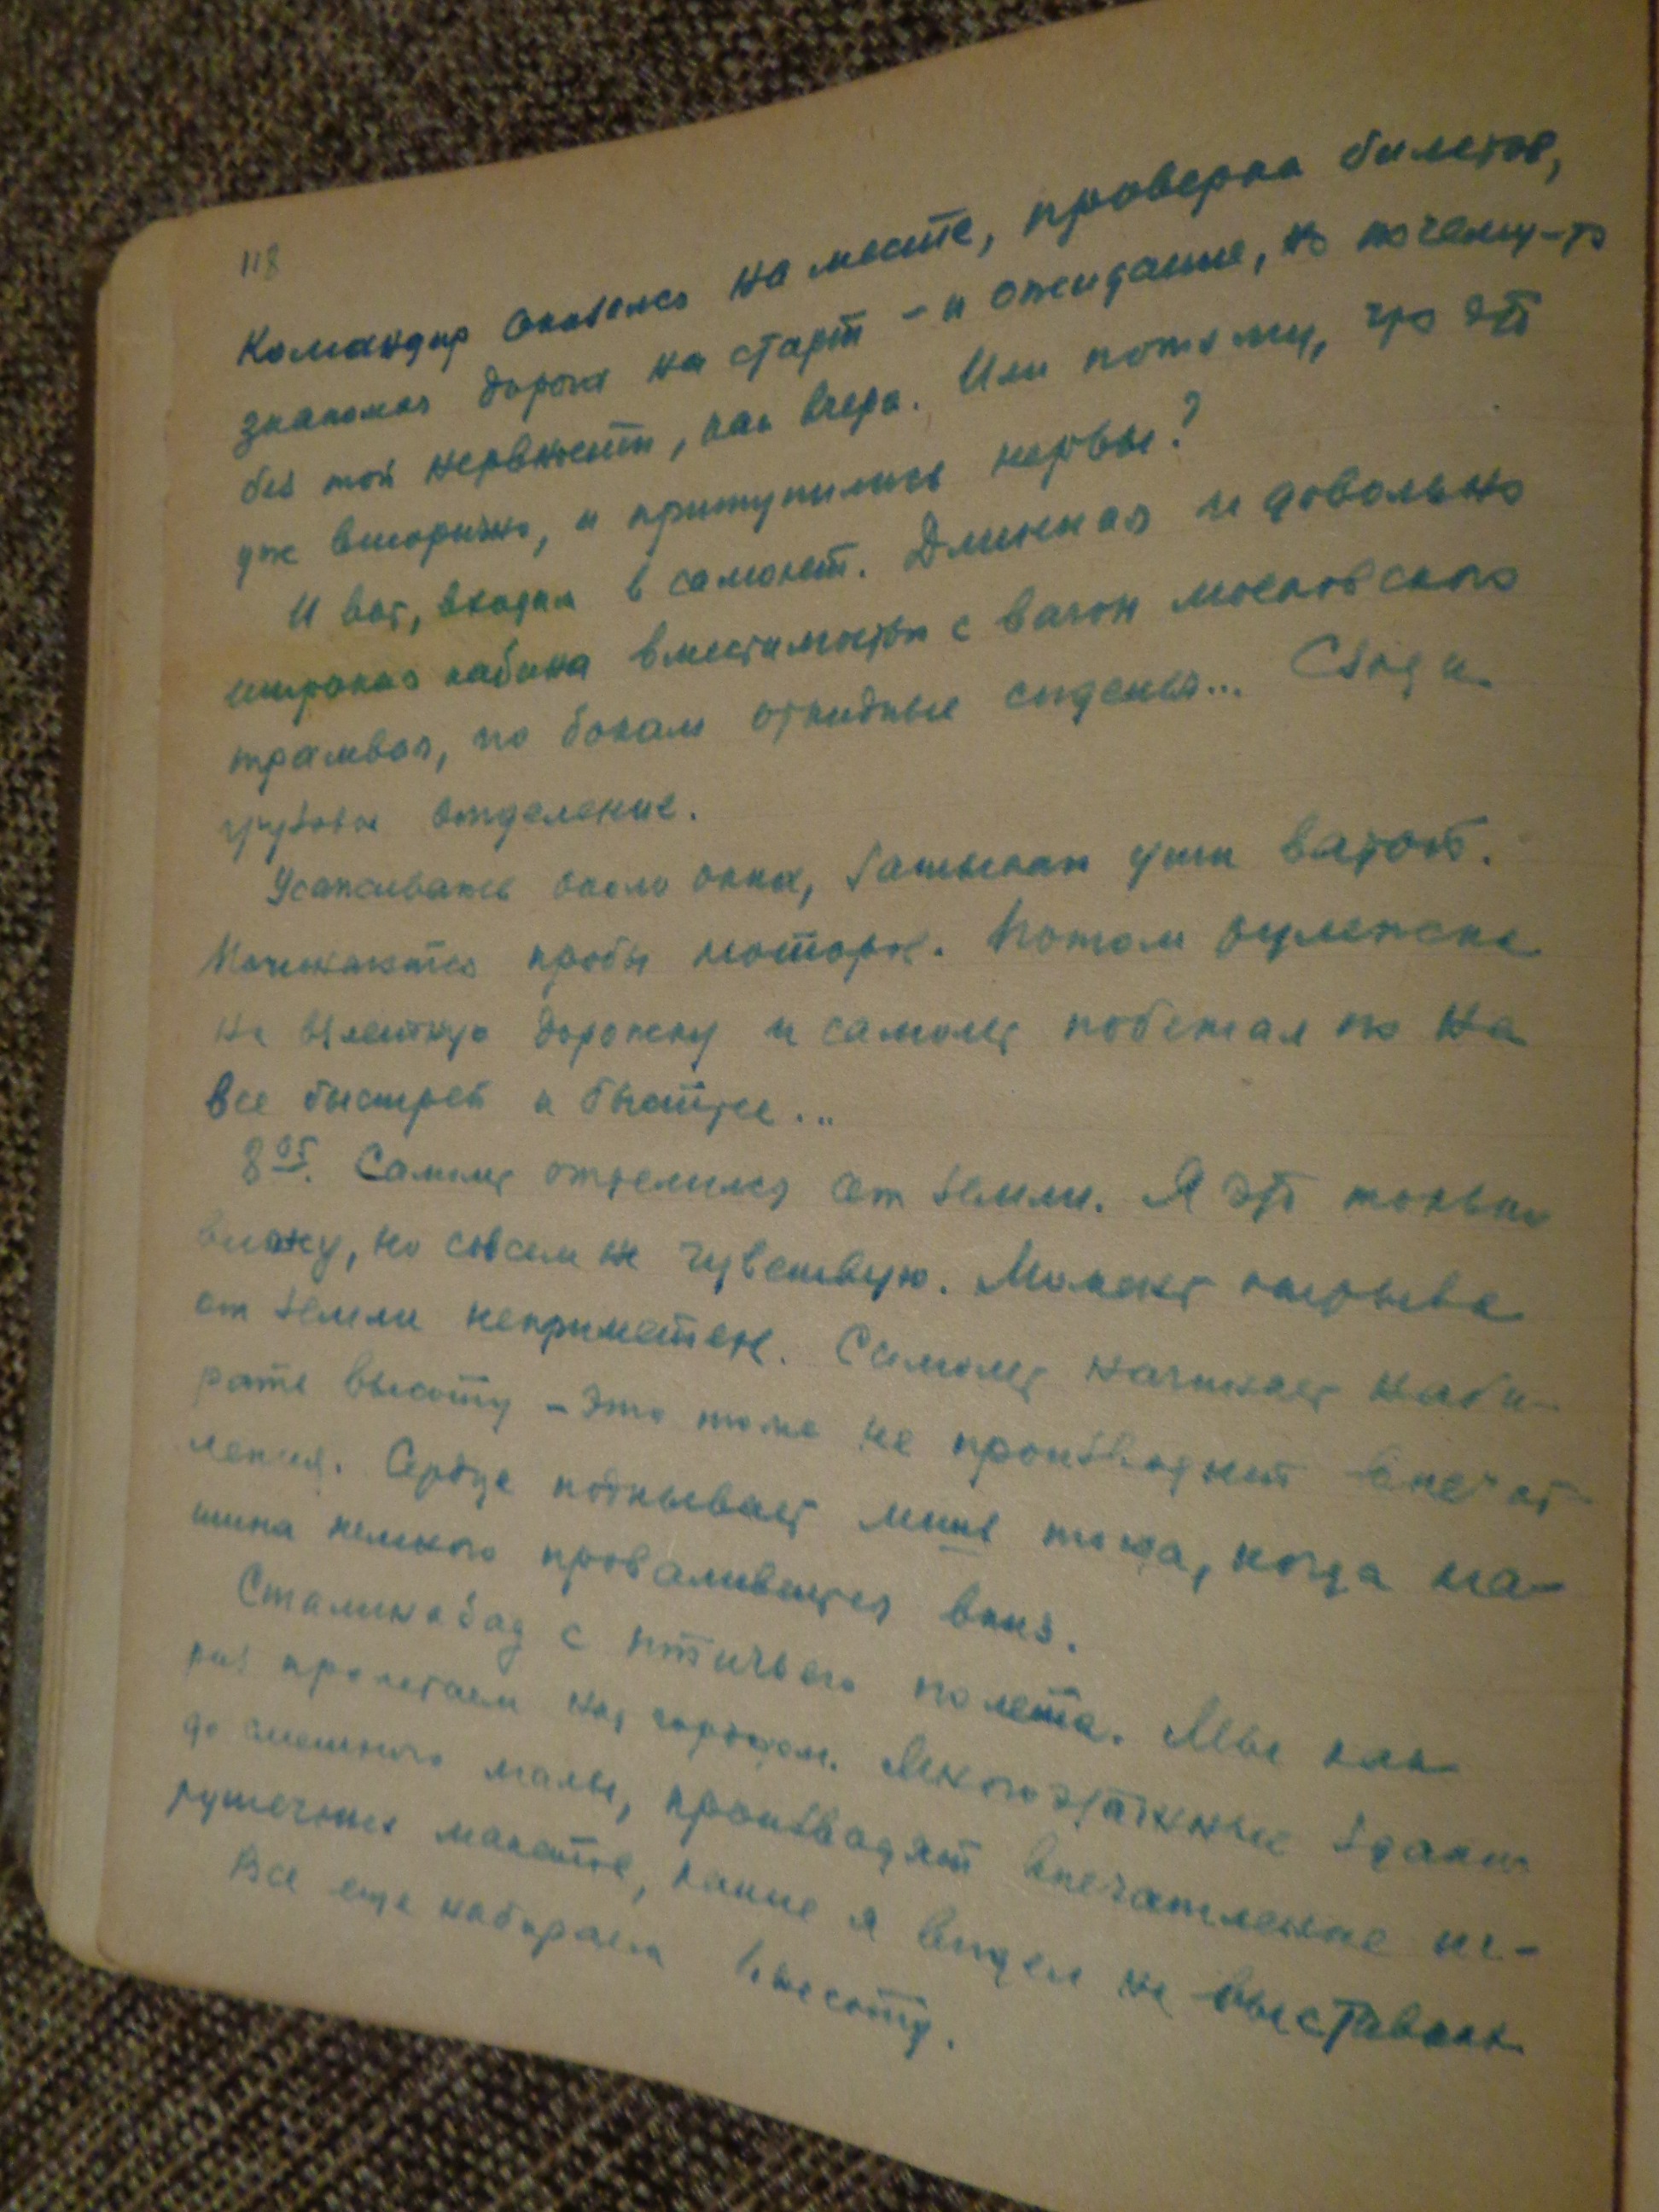 118
Командир оказался на месте, проверка билетов,
знакомая дорога на старт – и ожидание, но почему-то
без той нервности, как вчера. Или потому, что это
уже вторично, и притупились нервы?
И вот, входим в самолет. Длинная и довольно
широкая кабина вместимостью с вагон московского
трамвая, по бокам откидные сиденья... Сзади
грузовое отделение.
Усаживаюсь около окна, затыкаю уши ватой.
Начинаются пробы моторов. Потом
на взлетную дорожку и самолет побежал по ней
все быстрей и быстрее...
8 05. Самолет отделился от земли. Я это только
вижу, но совсем не чувствую. Момент отрыва
от земли неприметен. Самолет начинает наби-
рать высоту – это тоже не производит впечат-
ления. Сердце подмывает лишь тогда, когда ма-
шина немного проваливается вниз.
Сталинабад с птичьего полета. Мы как
раз пролетаем над городом. Многоэтажные здания
до смешного малы, производят впечатление иг-
рушечных макетов, какие я видел на выставках.
Все еще набираем высоту.